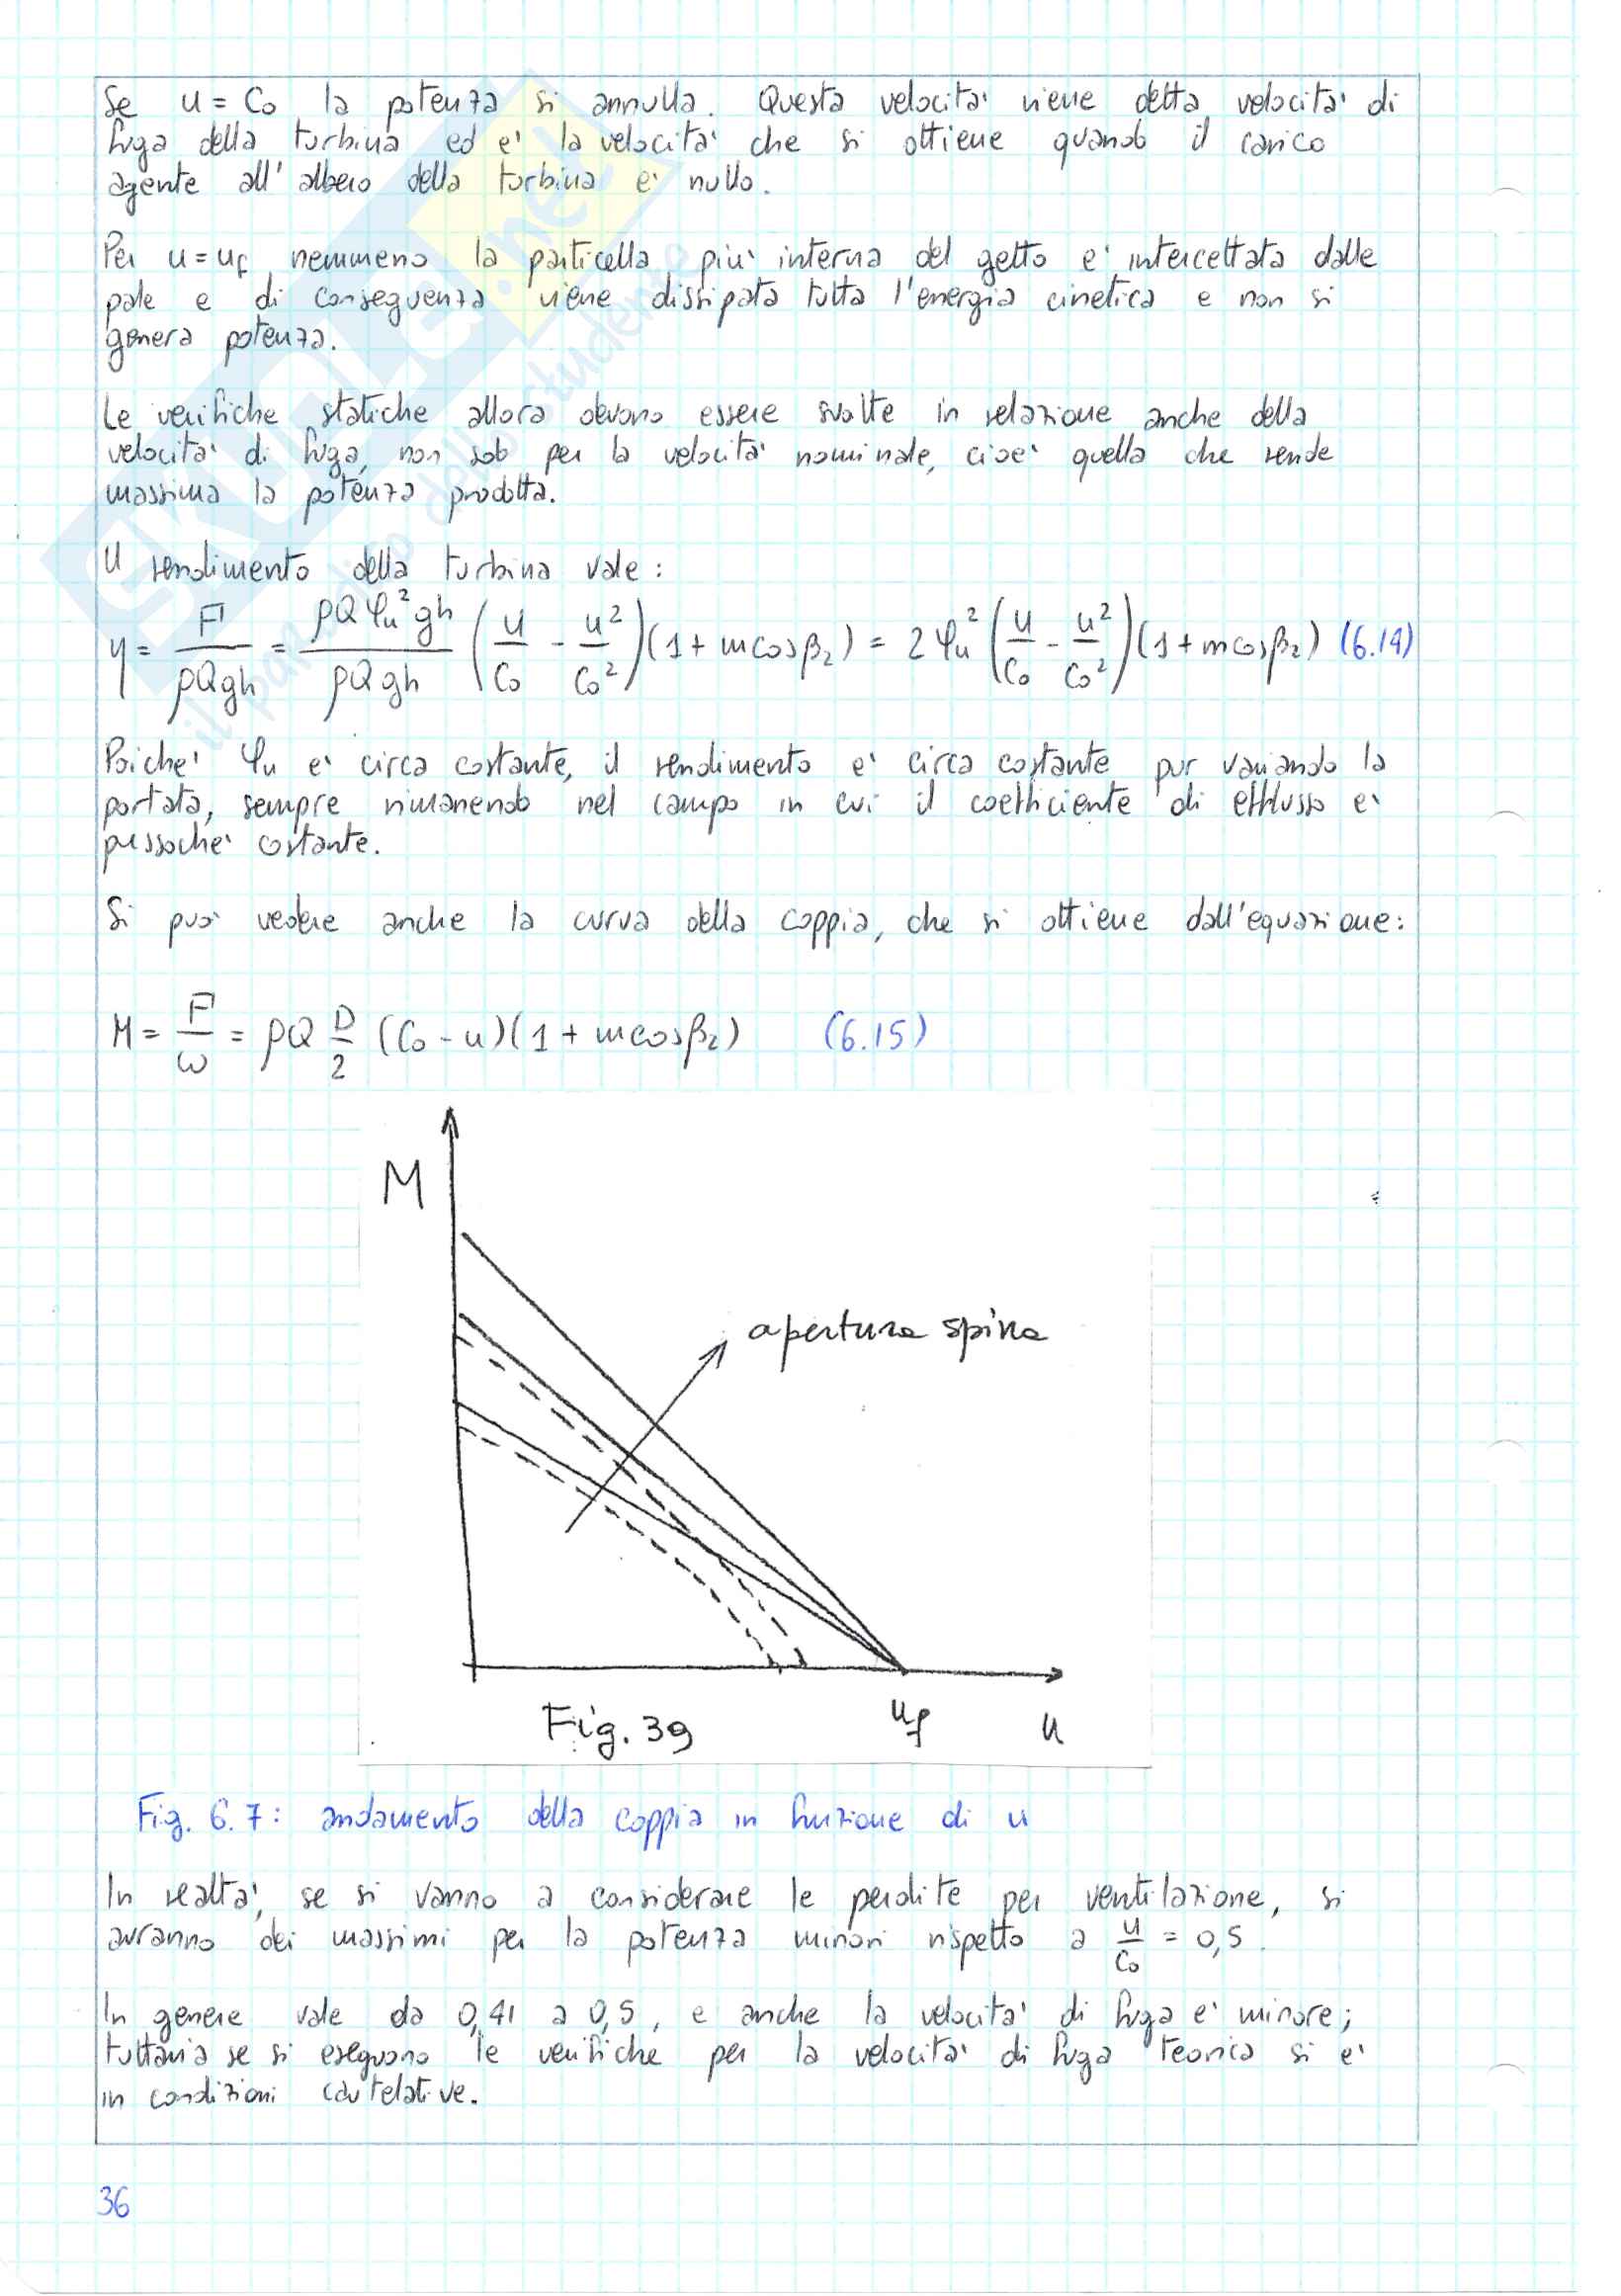 Se u = C₀ la potenza si annulla. Questa velocita' viene detta velocita' di
fuga della turbina ed e' la velocita' che si ottiene quando il carico
agente all'albero della turbina e' nullo.
Per u = u_f nemmeno la particella piu' interna del getto e' intercettata dalle
pale e di conseguenza viene dissipata tutta l'energia cinetica e non si
genera potenza.
Le verifiche statiche allora devono essere svolte in relazione anche della
velocita' di fuga, non solo per la velocita' nominale, cioe' quella che rende
massima la potenza prodotta.
Il rendimento della turbina vale:
η = P/(ρQgh) = (ρQφ_u²gh)/(ρQgh) (u/C₀ - u²/C₀²)(1 + m cosβ₂) = 2φ_u² (u/C₀ - u²/C₀²)(1 + m cosβ₂) (6.14)
Poiche' φ_u e' circa costante, il rendimento e' circa costante pur variando la
portata, sempre rimanendo nel campo in cui il coefficiente di efflusso e'
pressoche' costante.
Si puo' vedere anche la curva della coppia, che si ottiene dall'equazione:
M = P/ω = ρQ D/2 (C₀ - u)(1 + m cosβ₂) (6.15)
M
apertura spina
u_f
u
Fig. 39
Fig. 6.7: andamento della coppia in funzione di u
In realta', se si vanno a considerare le perdite per ventilazione, si
avranno dei massimi per la potenza minori rispetto a u/C₀ = 0,5.
In genere vale da 0,41 a 0,5, e anche la velocita' di fuga e' minore;
tuttavia se si eseguono le verifiche per la velocita' di fuga teorica si e'
in condizioni cautelative.
36
SKUOLA.net
il paradiso dello studente